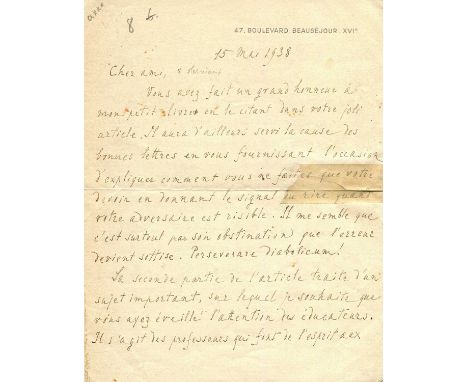 8
47, BOULEVARD BEAUSÉJOUR. XVIe
15 Mai 1938
Cher ami,
Vous avez fait un grand honneur à
mon petit livre en le citant dans votre joli
article. Il aura d'ailleurs servi la cause des
bonnes lettres en vous fournissant l'occasion
d'expliquer comment vous ne faites que votre
devoir en donnant le signal du rire quand
votre adversaire est risible. Il me semble que
c'est surtout par son obstination que l'erreur
devient sottise. Perseverare diabolicum!
La seconde partie de l'article traite d'un
sujet important, sur lequel je souhaite que
vous ayez éveillé l'attention des éducateurs.
Il s'agit des professeurs qui font de l'esprit aux